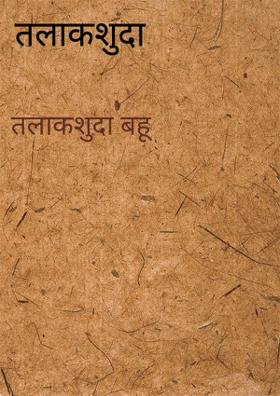 तलाकशुदा
तलाकशुदा बहू